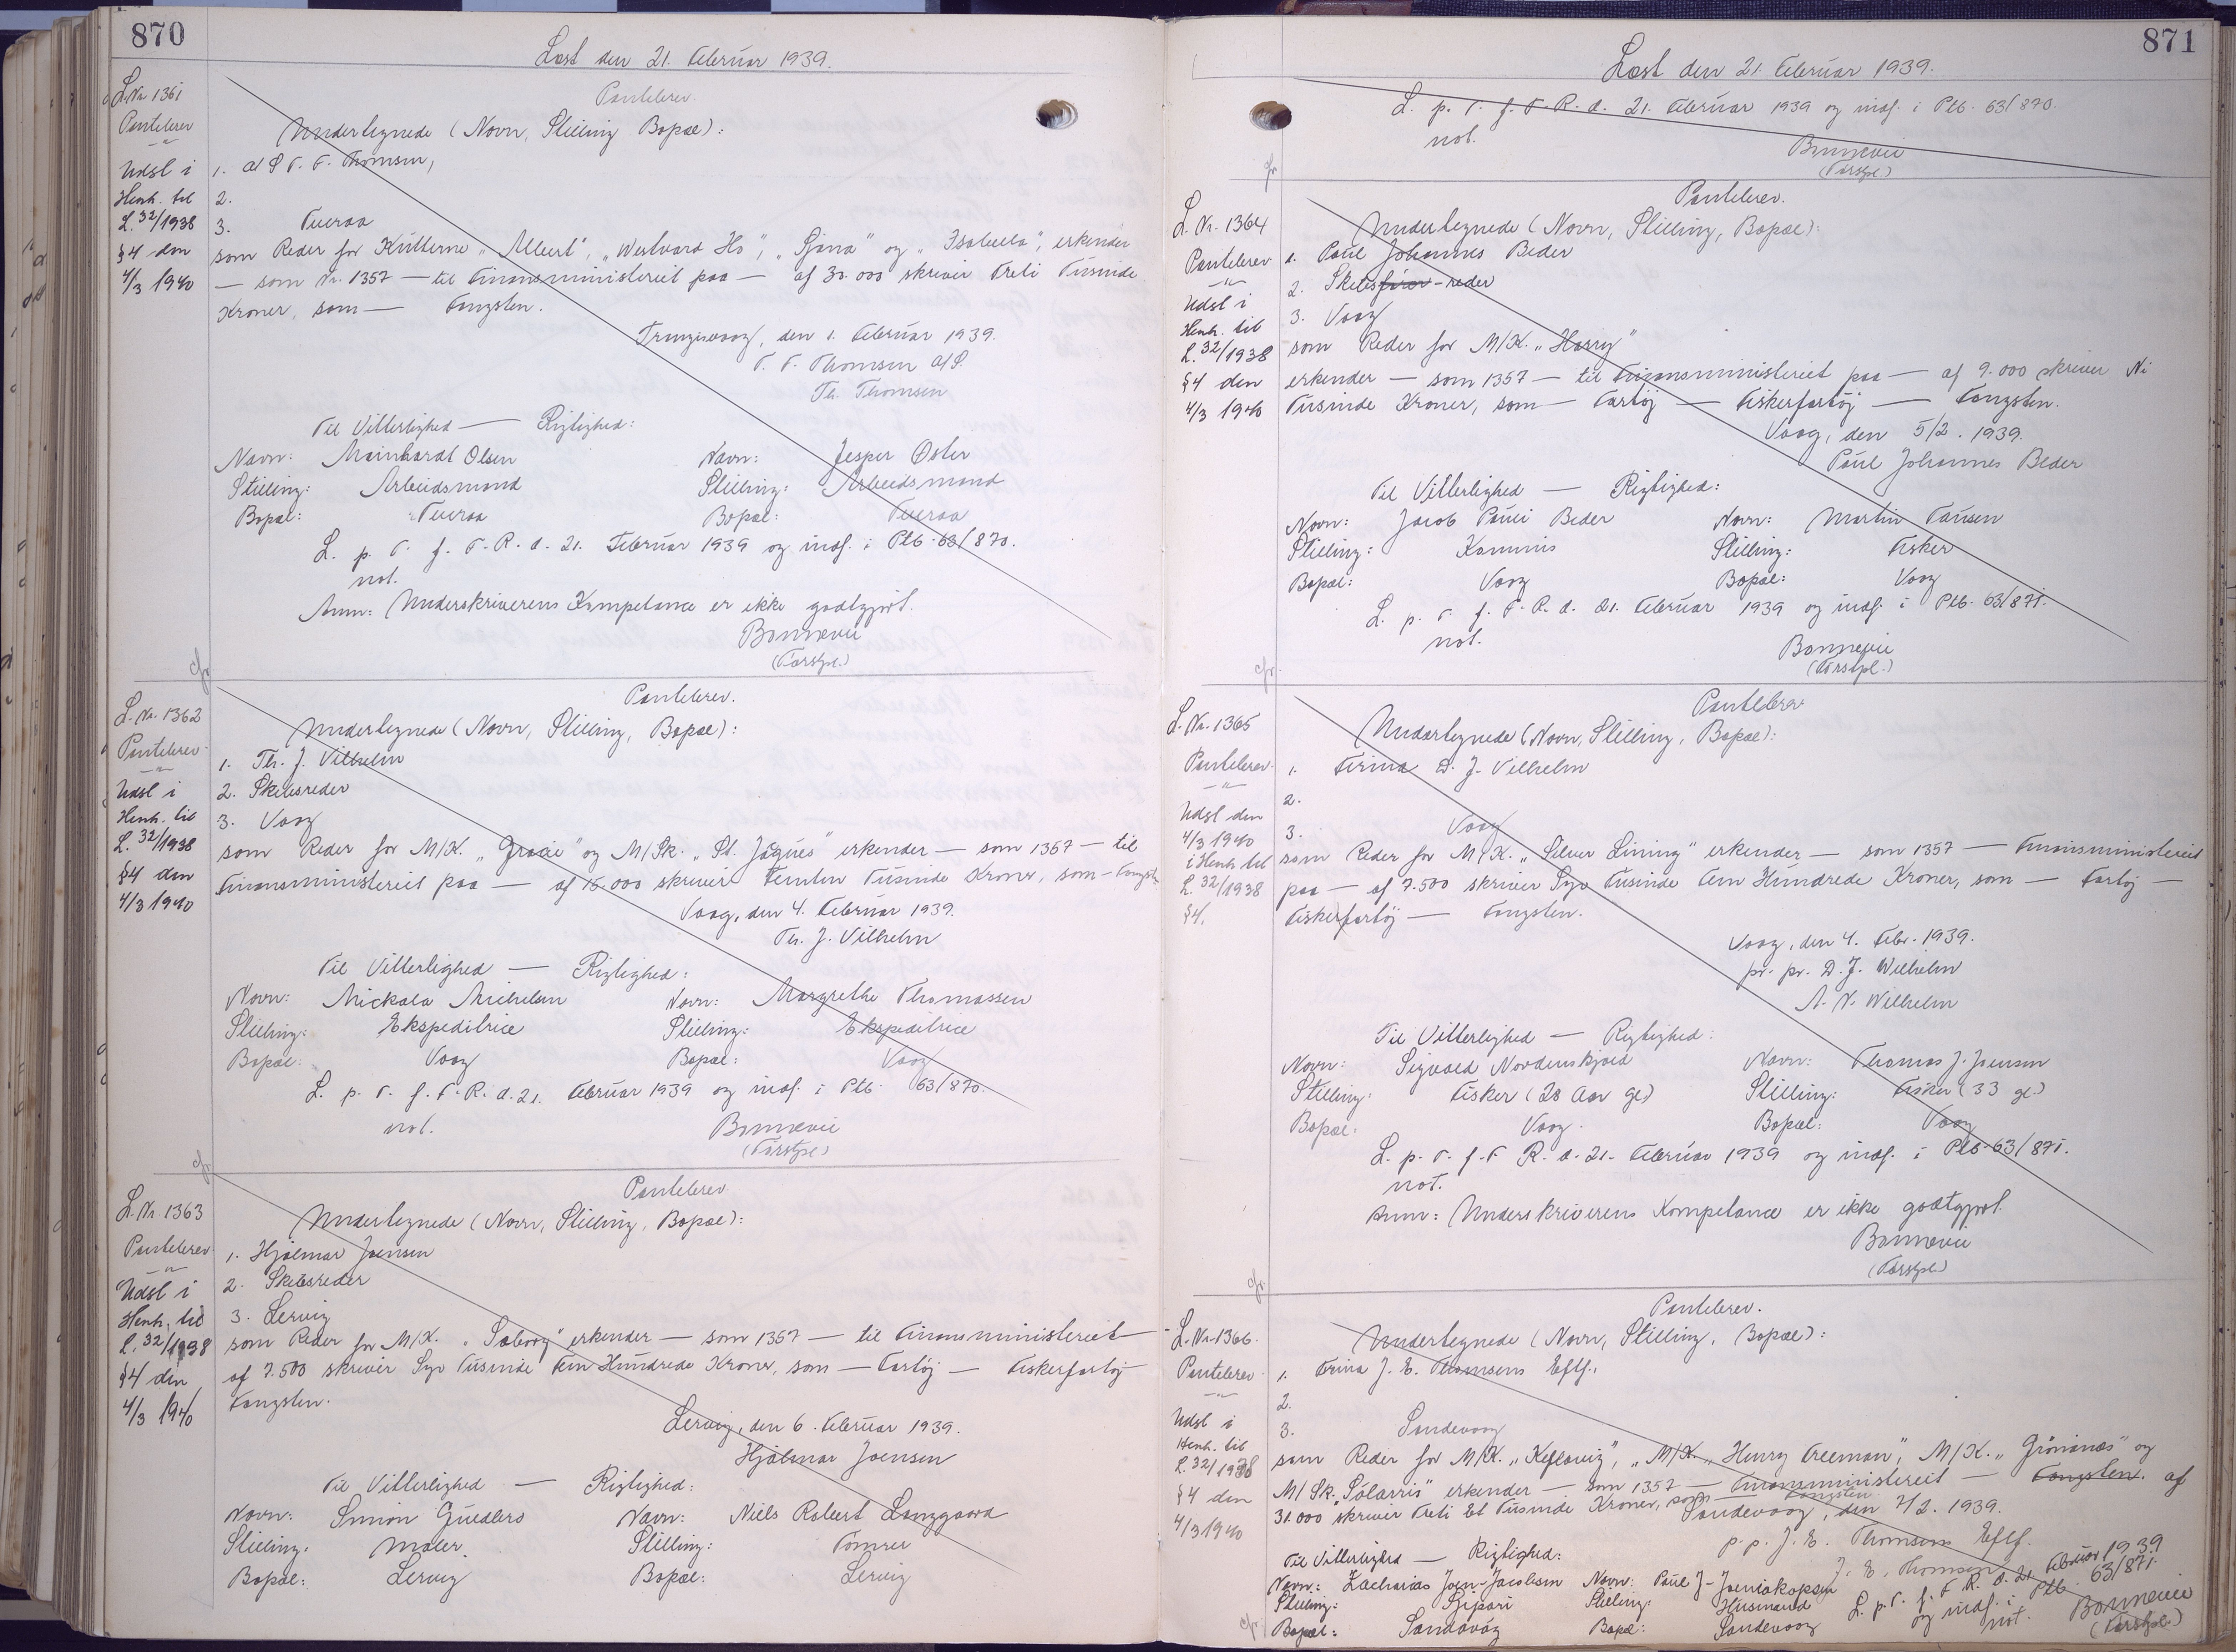 870
Læst den 21. Februar 1939.
L.Nr. 1361
Pantebrev
Udsl i
Henh. til
L. 32/1938
§4 den
4/3 1940
Pantebrev.
Undertegnede (Navn, Stilling Bopæl):
1. A/S T. F. Thomsen,
2.
3. Tveraa
som Reder for Kutterne „Albert", „Westward Ho", „Sjána" og „Isabella", erkender
— som Nr. 1357 — til Finansministeriet paa — af 30.000 skriver Treti Tusinde
Kroner, som — Fangsten.
Trungisvaag, den 1. Februar 1939.
T. F. Thomsen A/S.
Th. Thomsen
Til Vitterlighed — Rigtighed:
Navn: Mainhardt Olsen Navn: Jesper Oster
Stilling: Arbeidsmand Stilling: Arbeidsmand
Bopæl: Tveraa Bopæl: Tveraa
L. p. T. f. F. R. d. 21. Februar 1939 og indf. i Ptb. 63/870.
not.
Anm: Underskriverens Kompetance er ikke godtgjort.
Bonnevie
(Forstpl.)
cfr.
L. Nr. 1362
Pantebrev
Udsl i
Henh. til
L. 32/1938
§4 den
4/3 1940
Pantebrev.
Undertegnede (Navn, Stilling, Bopæl):
1. Th. J. Vilhelm
2. Skibsreder
3. Vaag
som Reder for M/K. „Gracie" og M/Sk. „St. Jáques" erkender — som 1357 — til
Finansministeriet paa — af 15.000 skriver Femten Tusinde Kroner, som — Fangst.
Vaag, den 4. Februar 1939.
Th. J. Vilhelm
Til Vitterlighed — Rigtighed:
Navn: Mickala Michelsen Navn: Margrethe Thomassen
Stilling: Ekspeditrice Stilling: Ekspeditrice
Bopæl: Vaag Bopæl: Vaag
L. p. T. f. F. R. d. 21. Februar 1939 og indf. i Ptb 63/870.
not.
Bonnevie
(Forstpl.)
cfr.
L. Nr. 1363
Pantebrev
Udsl i
Henh. til
L. 32/1938
§4 den
4/3 1940
Pantebrev
Undertegnede (Navn, Stilling, Bopæl):
1. Hjálmar Joensen
2. Skibsreder
3. Lervig
som Reder for M/K. „Sæborg" erkender — som 1357 — til Finansministeriet —
af 7.500 skriver Syv Tusinde Fem Hundrede Kroner, som — Fartøj — Fiskerfartøj
Fangsten.
Lervig, den 6. Februar 1939.
Hjálmar Joensen
Til Vitterlighed — Rigtighed:
Navn: Simion Guedlers Navn: Niels Robert Langgaard
Stilling: Maler Stilling: Tømrer
Bopæl: Lervig Bopæl: Lervig
871
Læst den 21. Februar 1939.
L. p. T. f. F. R. d. 21. Februar 1939 og indf. i Ptb. 63/870.
not.
Bonnevie
(Forstpl.)
cfr
L. Nr. 1364
Pantebrev
Udsl i
Henh. til
L. 32/1938
§4 den
4/3 1940
Pantebrev.
Undertegnede (Navn, Stilling, Bopæl):
1. Poul Johannes Beder
2. Skibsfører-reder
3. Vaag
som Reder for M/K. „Harry"
erkender — som 1357 — til Finansministeriet paa — af 9.000 skriver Ni
Tusinde Kroner, som — Fartøj — Fiskerfartøj — Fangsten.
Vaag, den 5/2. 1939.
Poul Johannes Beder
Til Vitterlighed — Rigtighed:
Navn: Jacob Pouli Beder Navn: Martin Tausen
Stilling: Kommis Stilling: Fisker
Bopæl: Vaag Bopæl: Vaag
L. p. T. f. F. R. d. 21. Februar 1939 og indf. i Ptb. 63/871.
not.
Bonnevie
(Forstpl.)
cfr.
L. Nr. 1365
Pantebrev.
Udsl den
4/3 1940
i Henh. til
L. 32/1938
§4.
Pantebrev
Undertegnede (Navn, Stilling, Bopæl):
1. Firma D. J. Vilhelm
2.
3. Vaag
som Reder for M/K. „Silver Lining" erkender — som 1357 — Finansministeriet
paa — af 7.500 skriver Syv Tusinde Fem Hundrede Kroner, som — Fartøj —
Fiskerfartøj — Fangsten.
Vaag, den 4. Febr. 1939.
pr. pr. D. J. Wilhelm
A. N. Wilhelm
Til Vitterlighed — Rigtighed:
Navn: Sigvald Nordenskjold Navn: Thomas J. Joensen
Stilling: Fisker (28 Aar gl) Stilling: Fisker (33 gl.)
Bopæl: Vaag. Bopæl: Vaag
L. p. T. f. F. R. d. 21. Februar 1939 og indf. i Ptb. 63/871.
not.
Anm: Underskriverens Kompetance er ikke godtgjort.
Bonnevie
(Forstpl.)
cfr.
L. Nr. 1366.
Pantebrev
Udsl i
Henh. til
L. 32/1938
§4 den
4/3 1940
Pantebrev.
Undertegnede (Navn, Stilling, Bopæl):
1. Firma J. E. Thomsens Eftf.,
2.
3. Sandevaag
som Reder for M/K. „Keflavig", „M/K. „Henry Freeman", M/K. „Grönanes" og
M/Sk. „Sólarris" erkender — som 1357 — Finansministeriet — Fangsten. af
31.000 skriver Treti Et Tusinde Kroner, som — Fangsten
Sandevaag, den 7/2. 1939.
p.p. J. E. Thomsens Eftf.
J. E. Thomsen
Til Vitterlighed — Rigtighed:
Navn: Zacharias Joen-Jacobsen Navn: Poul J- Joeniakopsen
Stilling: Stilling: Husmand
Bopæl: Sandavág Bopæl: Sandevaag
L. p. T. f. F. R. d. 21 Februar 1939
og indf. i Ptb. 63/871.
not.
Bonnevie
(Forstpl.)
cfr.